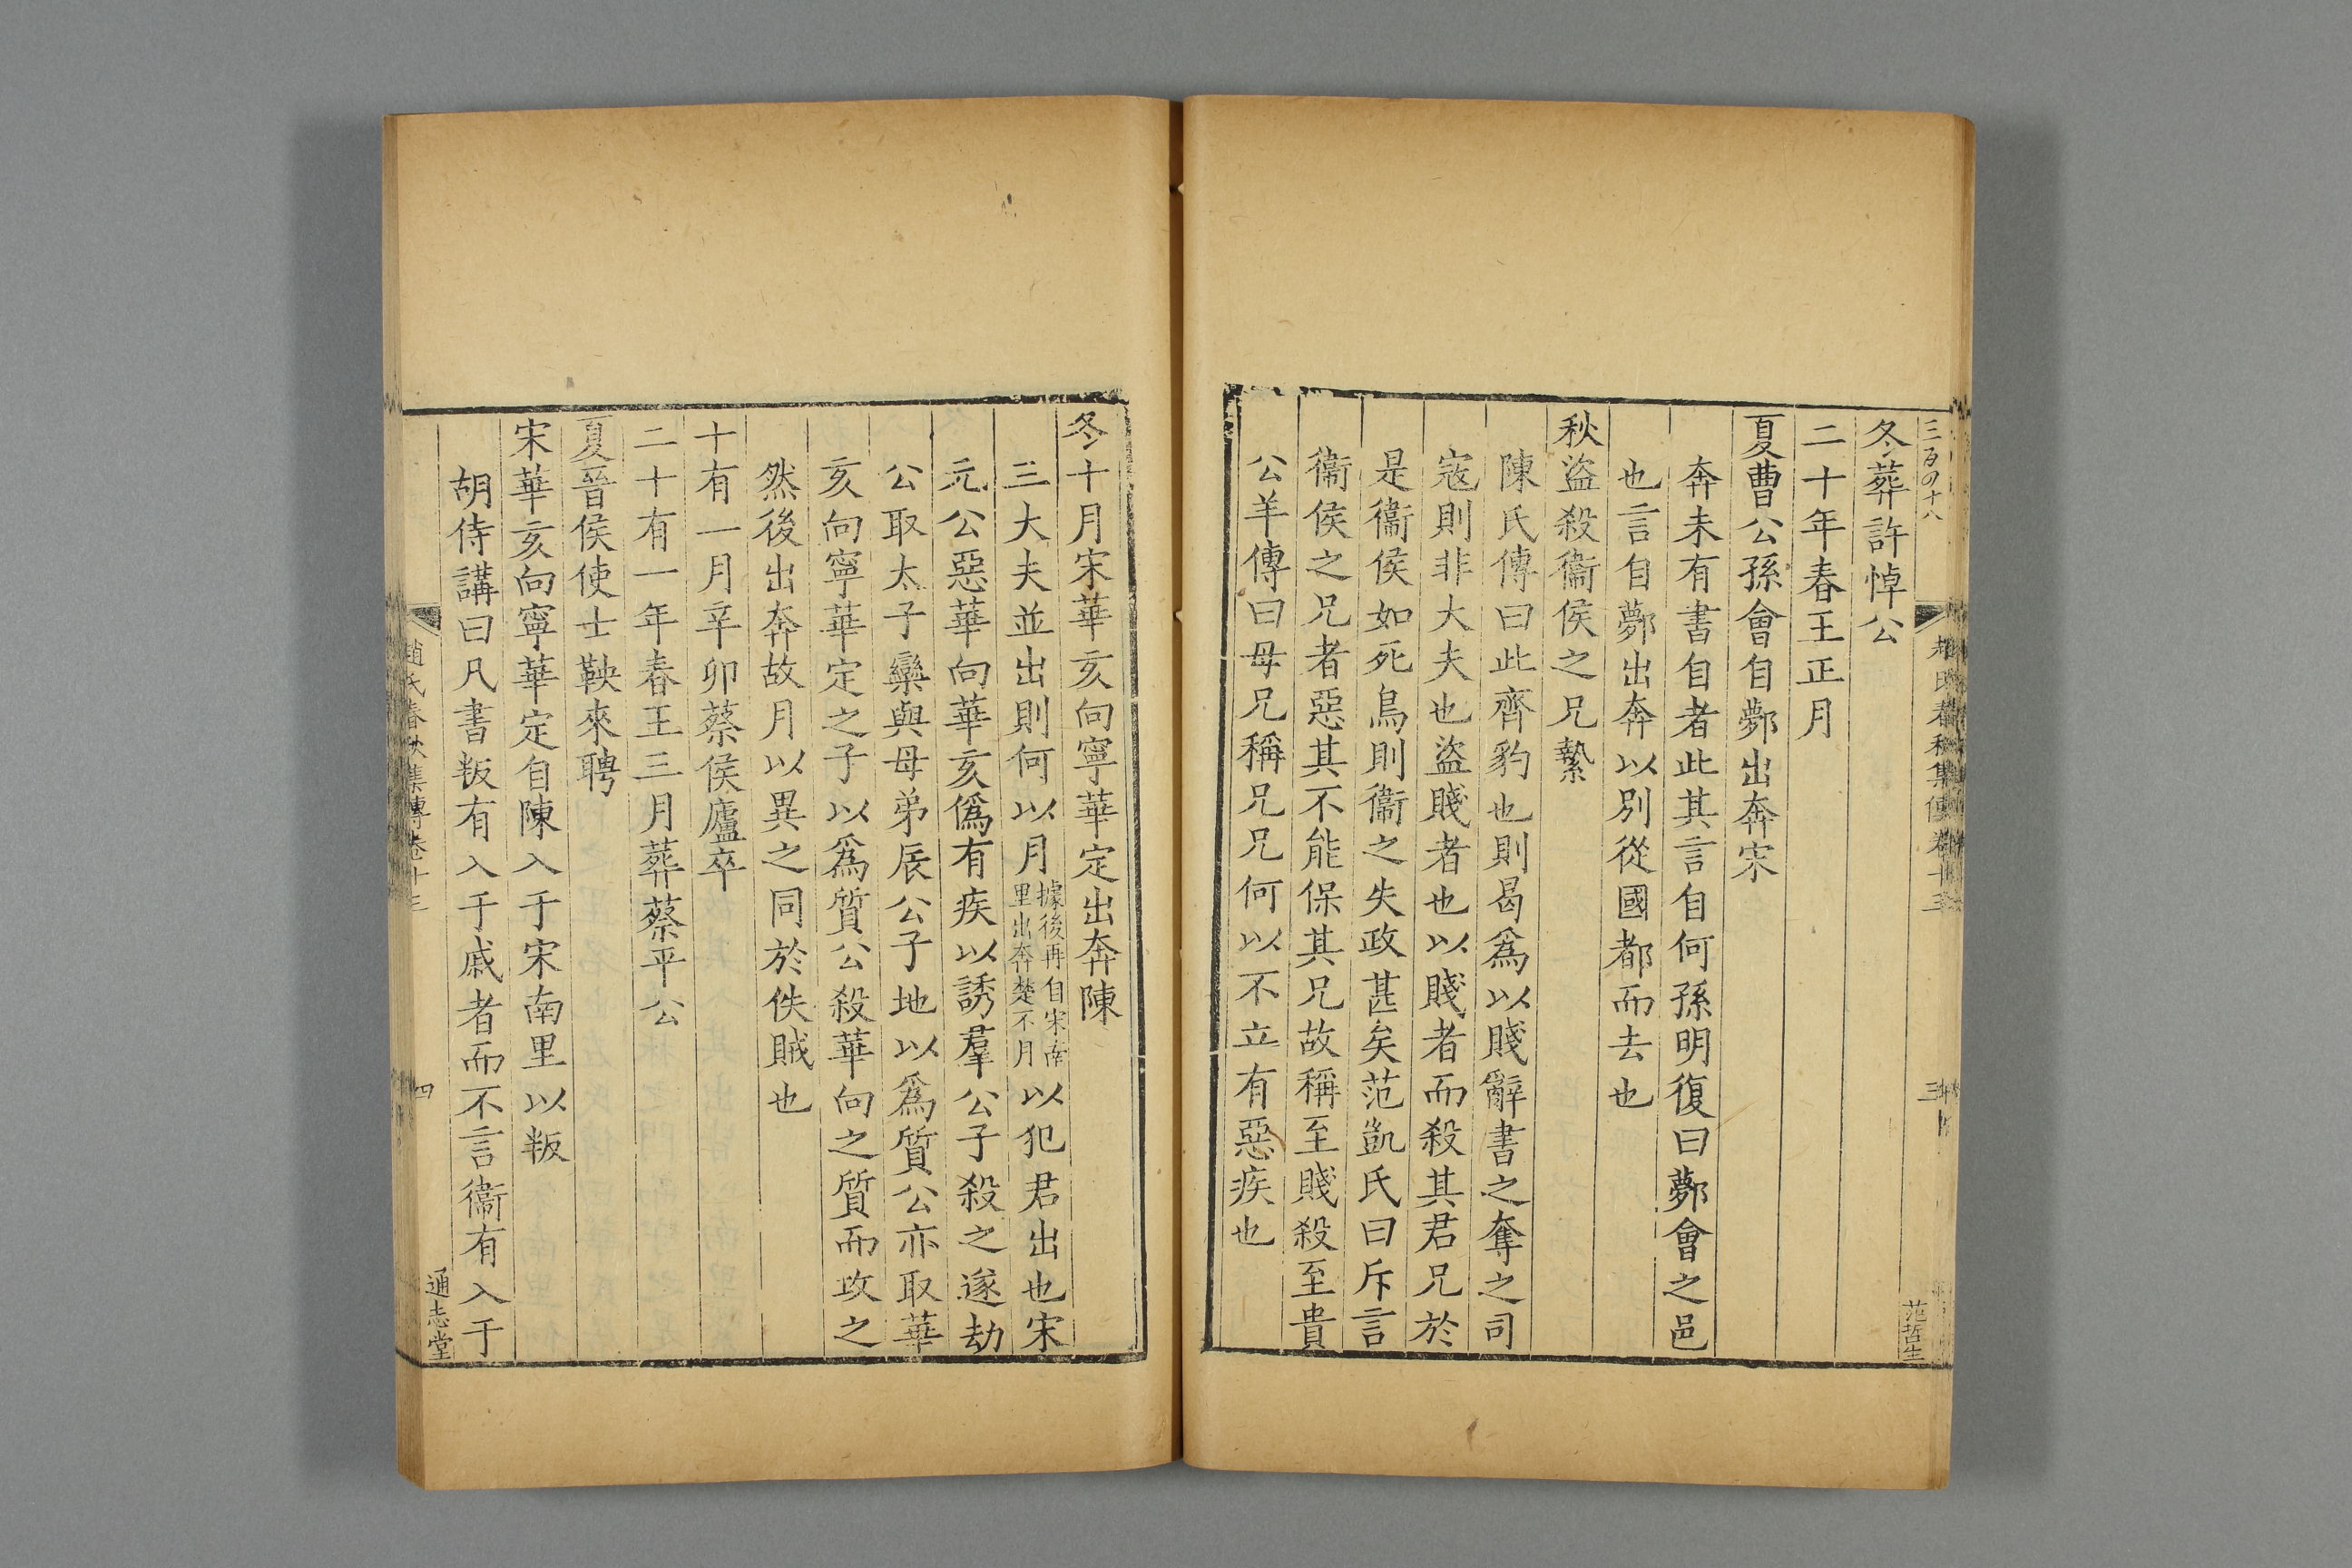 三百四十八
趙氏春秋集傳卷十三
三
范哲生
冬葬許悼公
二十年春王正月
夏曹公孫會自鄸出奔宋
奔未有書自者此其言自何孫明復曰鄸會之邑
也言自鄸出奔以別從國都而去也
秋盜殺衞侯之兄縶
陳氏傳曰此齊豹也則曷爲以賤辭書之奪之司
寇則非大夫也盜賤者也以賤者而殺其君兄於
是衞侯如死鳥則衞之失政甚矣范凱氏曰斥言
衞侯之兄者惡其不能保其兄故稱至賤殺至貴
公羊傳曰母兄稱兄兄何以不立有惡疾也
冬十月宋華亥向寧華定出奔陳
三大夫並出則何以月據後再自宋南里出奔楚不月以犯君出也宋
元公惡華向華亥僞有疾以誘羣公子殺之遂劫
公取太子欒與母弟辰公子地以爲質公亦取華
亥向寧華定之子以爲質公殺華向之質而攻之
然後出奔故月以異之同於佚賊也
十有一月辛卯蔡侯廬卒
二十有一年春王三月葬蔡平公
夏晉侯使士鞅來聘
宋華亥向寧華定自陳入于宋南里以叛
胡侍講曰凡書叛有入于戚者而不言衞有入于
趙氏春秋集傳卷十三
四
通志堂